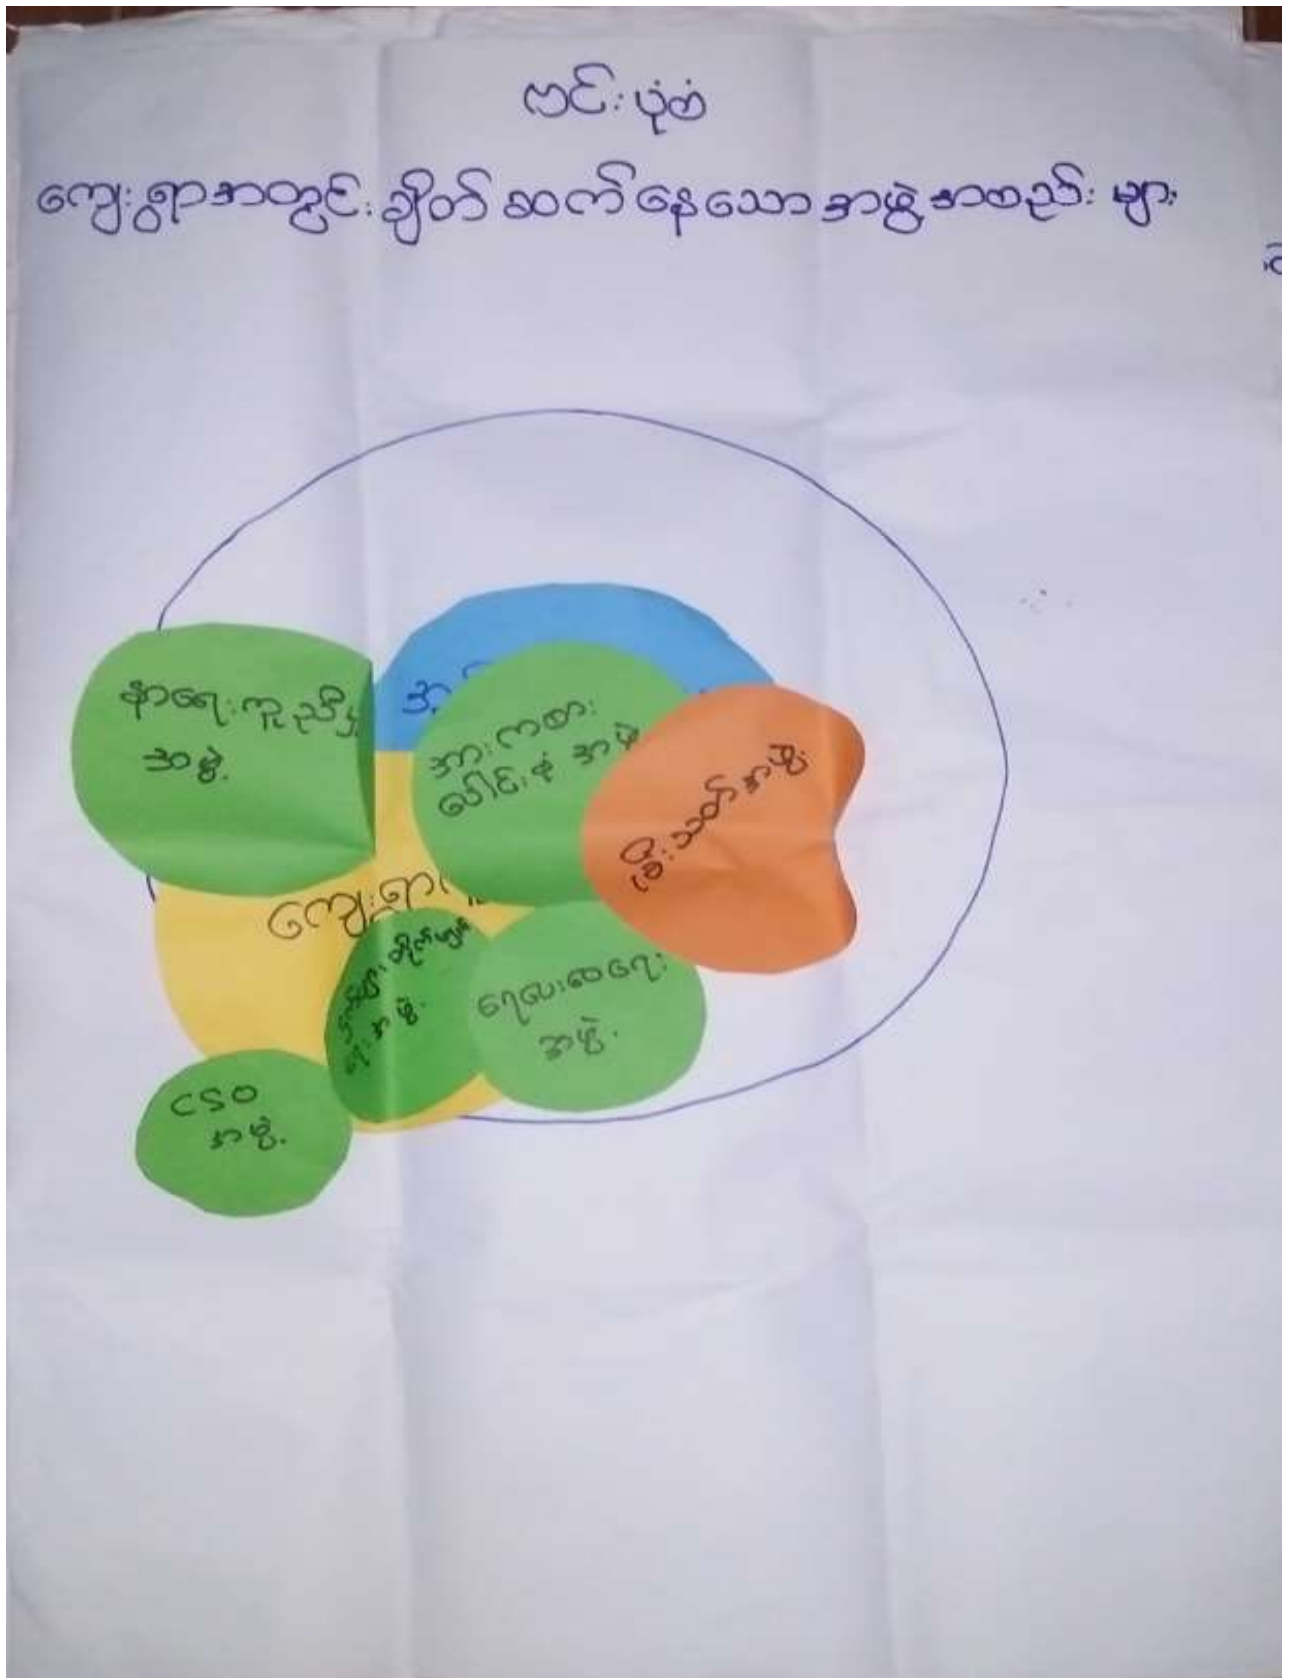 ဗင်းပုံစံ
ကျေးရွာအတွင်းချိတ်ဆက်နေသောအဖွဲ့အစည်းများ
နာရေးကူညီမှု
အဖွဲ့
အားကစား
ပေါင်းစုံ အဖွဲ့
မီးသတ်အဖွဲ့
ကျေးရွာ
ရေး အဖွဲ့
ရေပေးဝေရေး
အဖွဲ့
CSO
အဖွဲ့